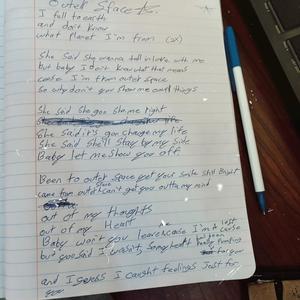 Outer Space
I fell to earth
and don't know
what planet I'm from (2x)
She said she wanna fall in love with me
but baby I don't know what that means
cause I'm from outer space
So why don't you show me things
She said she gon sho me right
She said it's gon change my life
She said she'll stay by my side
Baby let me show you off
Been to outer space yet your smile still Bright
came from outer can't get you outta my mind
out of my thoughts
out of my Heart
Baby won't you leave me cause I'm a lost cause
but you said I wasn't, so my heart been
Pumping
for you
and I guess I caught feelings Just for
you